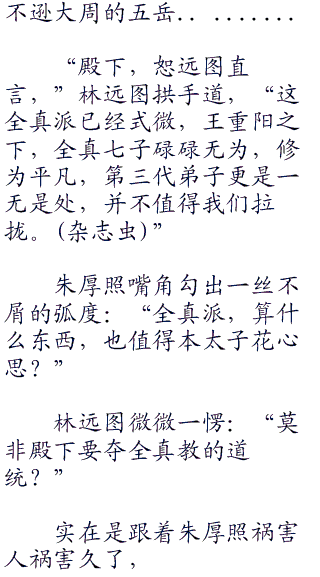 不逊大周的五岳.. .......
“殿下，恕远图直
言，”林远图拱手道，“这
全真派已经式微，王重阳之
下，全真七子碌碌无为，修
为平凡，第三代弟子更是一
无是处，并不值得我们拉
拢。(杂志虫)”
朱厚照嘴角勾出一丝不
屑的弧度：“全真派，算什
么东西，也值得本太子花心
思？”
林远图微微一愣：“莫
非殿下要夺全真教的道
统？”
实在是跟着朱厚照祸害
人祸害久了，